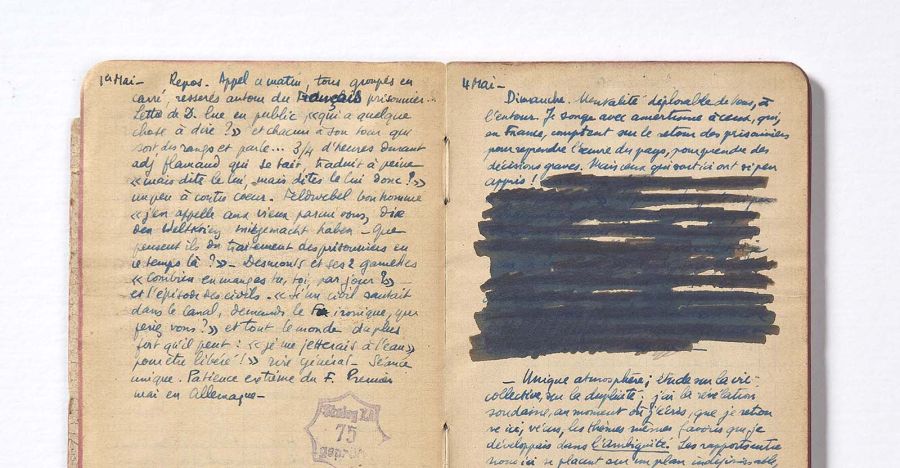 1er Mai – Repos. Appel a matin, tous groupés en
carré, resserés autour du Français prisonnier...
Lettre de D. lue en public « qui a quelque
chose à dire ? » et chacun à son tour qui
sort des rangs et parle... 3/4 d'heures durant
adj flamand qui se tait, traduit à peine
« mais dites le lui, mais dites le lui donc ? »
un peu à contre coeur. Feldwebel bon homme
« j'en appelle aux vieux parmi vous, die
den Weltkrieg mitgemacht haben – que
pensent ils du traitement des prisonniers en
ce temps là ? » – Desmonts et ses 2 gamelles
« Combien en manges tu, toi, par jour ? » –
et l'épisode des civils. « Si un civil sautait
dans le canal, demande le F. ironique, que
feriez vous ? » et tout le monde du plus
fort qu'il peut : « je me jetterais à l'eau »
pour être libéré ! » rire général – Séance
unique. Patience extrême du F. Premier
mai en Allemagne –
Stalag
75
geprüft
4 Mai –
Dimanche. Mentalité déplorable de tous, à
l'entour. Je songe avec amertume à ceux, qui,
en France, comptent sur le retour des prisonniers
pour reprendre l'oeuvre du pays, pour prendre des
décisions graves. Mais ceux qui sont ici ont si peu
appris !
– Unique atmosphère ; étude sur la vie
collective, sur la duplicité ; j'ai la révélation
soudaine, au moment où j'écris, que je retrouve
ici, vécus, les thèmes mêmes favoris que je
développais dans l'Ambiguïté. Les rapports entre
nous ici se placent sur un plan indéfinissable,